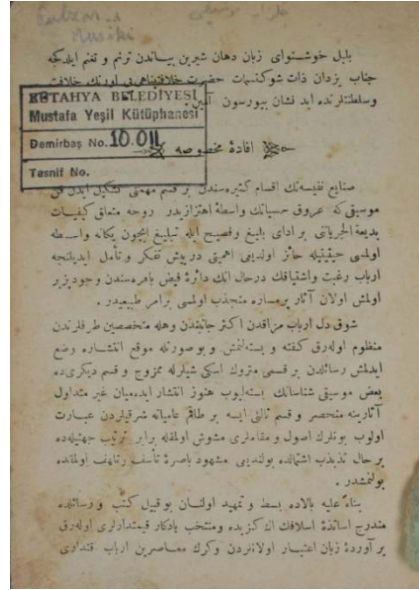 بلبل خوشنوای زبان دهان شیرین بیاندن ترنم و تغنم ایلدکجه
جناب یزدان ذات شوکتسمات حضرت خلافتپناهی اورنك خلافت
وسلطنتلرنده ابد نشان بیورسون آمین
KÜTAHYA BELEDİYESİ
Mustafa Yeşil Kütüphanesi
Demirbaş No. 10.011
Tasnif No.
افادهٔ مخصوصه
صنایع نفیسه‌نك اقسام کثیره‌سندن بر قسم مهمنی تشکیل ایدن فن
موسیقی که عروق حسیاتك واسطهٔ اهتزازیدر روحه متعلق کیفیات
بدیعة الجریانی بر ادای بلیغ وفصیح ایله تبلیغ ایچون یکانه واسطه
اولمی حیثیتیله حائز اولدیغی اهمیتی درپیش تفکر و تأمل ایدیلنجه
ارباب رغبت واشتیاقك درحال انك دائرهٔ فیض باهره‌سندن وجودپذیر
اولمش اولان آثار برمساره منجذب اولمسی برامر طبیعیدر .
شوق دل ارباب مراقدن اکثر جانبندن وهله متخصصین طرفلرندن
منظوم اوله‌رق کفته و بسته‌لنمش و بو صورتله موقع انتشاره وضع
ایدلمش رسائلدن بر قسمی متروك اسکی شیلرله ممزوج و قسم دیکری‌ده
بعض موسیقی شناسانك بسته‌لیوب هنوز انتشار ایده‌میان غیر متداول
آثارینه منحصر و قسم ثالثی ایسه بر طاقم عامیانه شرقیلردن عبارت
اولوب بونلرك اصول و مقاملری مشوش اولمغله برابر ترتیب جهتیله‌ده
بر حال تذبذب اشتمالده بولندیغی مشهود باصرهٔ تأسف و تلهف اولمقده
بولنمشدر .
بناءً علیه بالاده بسط و تمهید اولنان بوقبیل کتب و رسائلده
مندرج اساتذهٔ اسلافك اك کزیده ومنتخب یادکار قیمتدارلری اوله‌رق
بر آوردهٔ زبان اعتبار اولانلردن وکرك معاصرین ارباب اقتداری